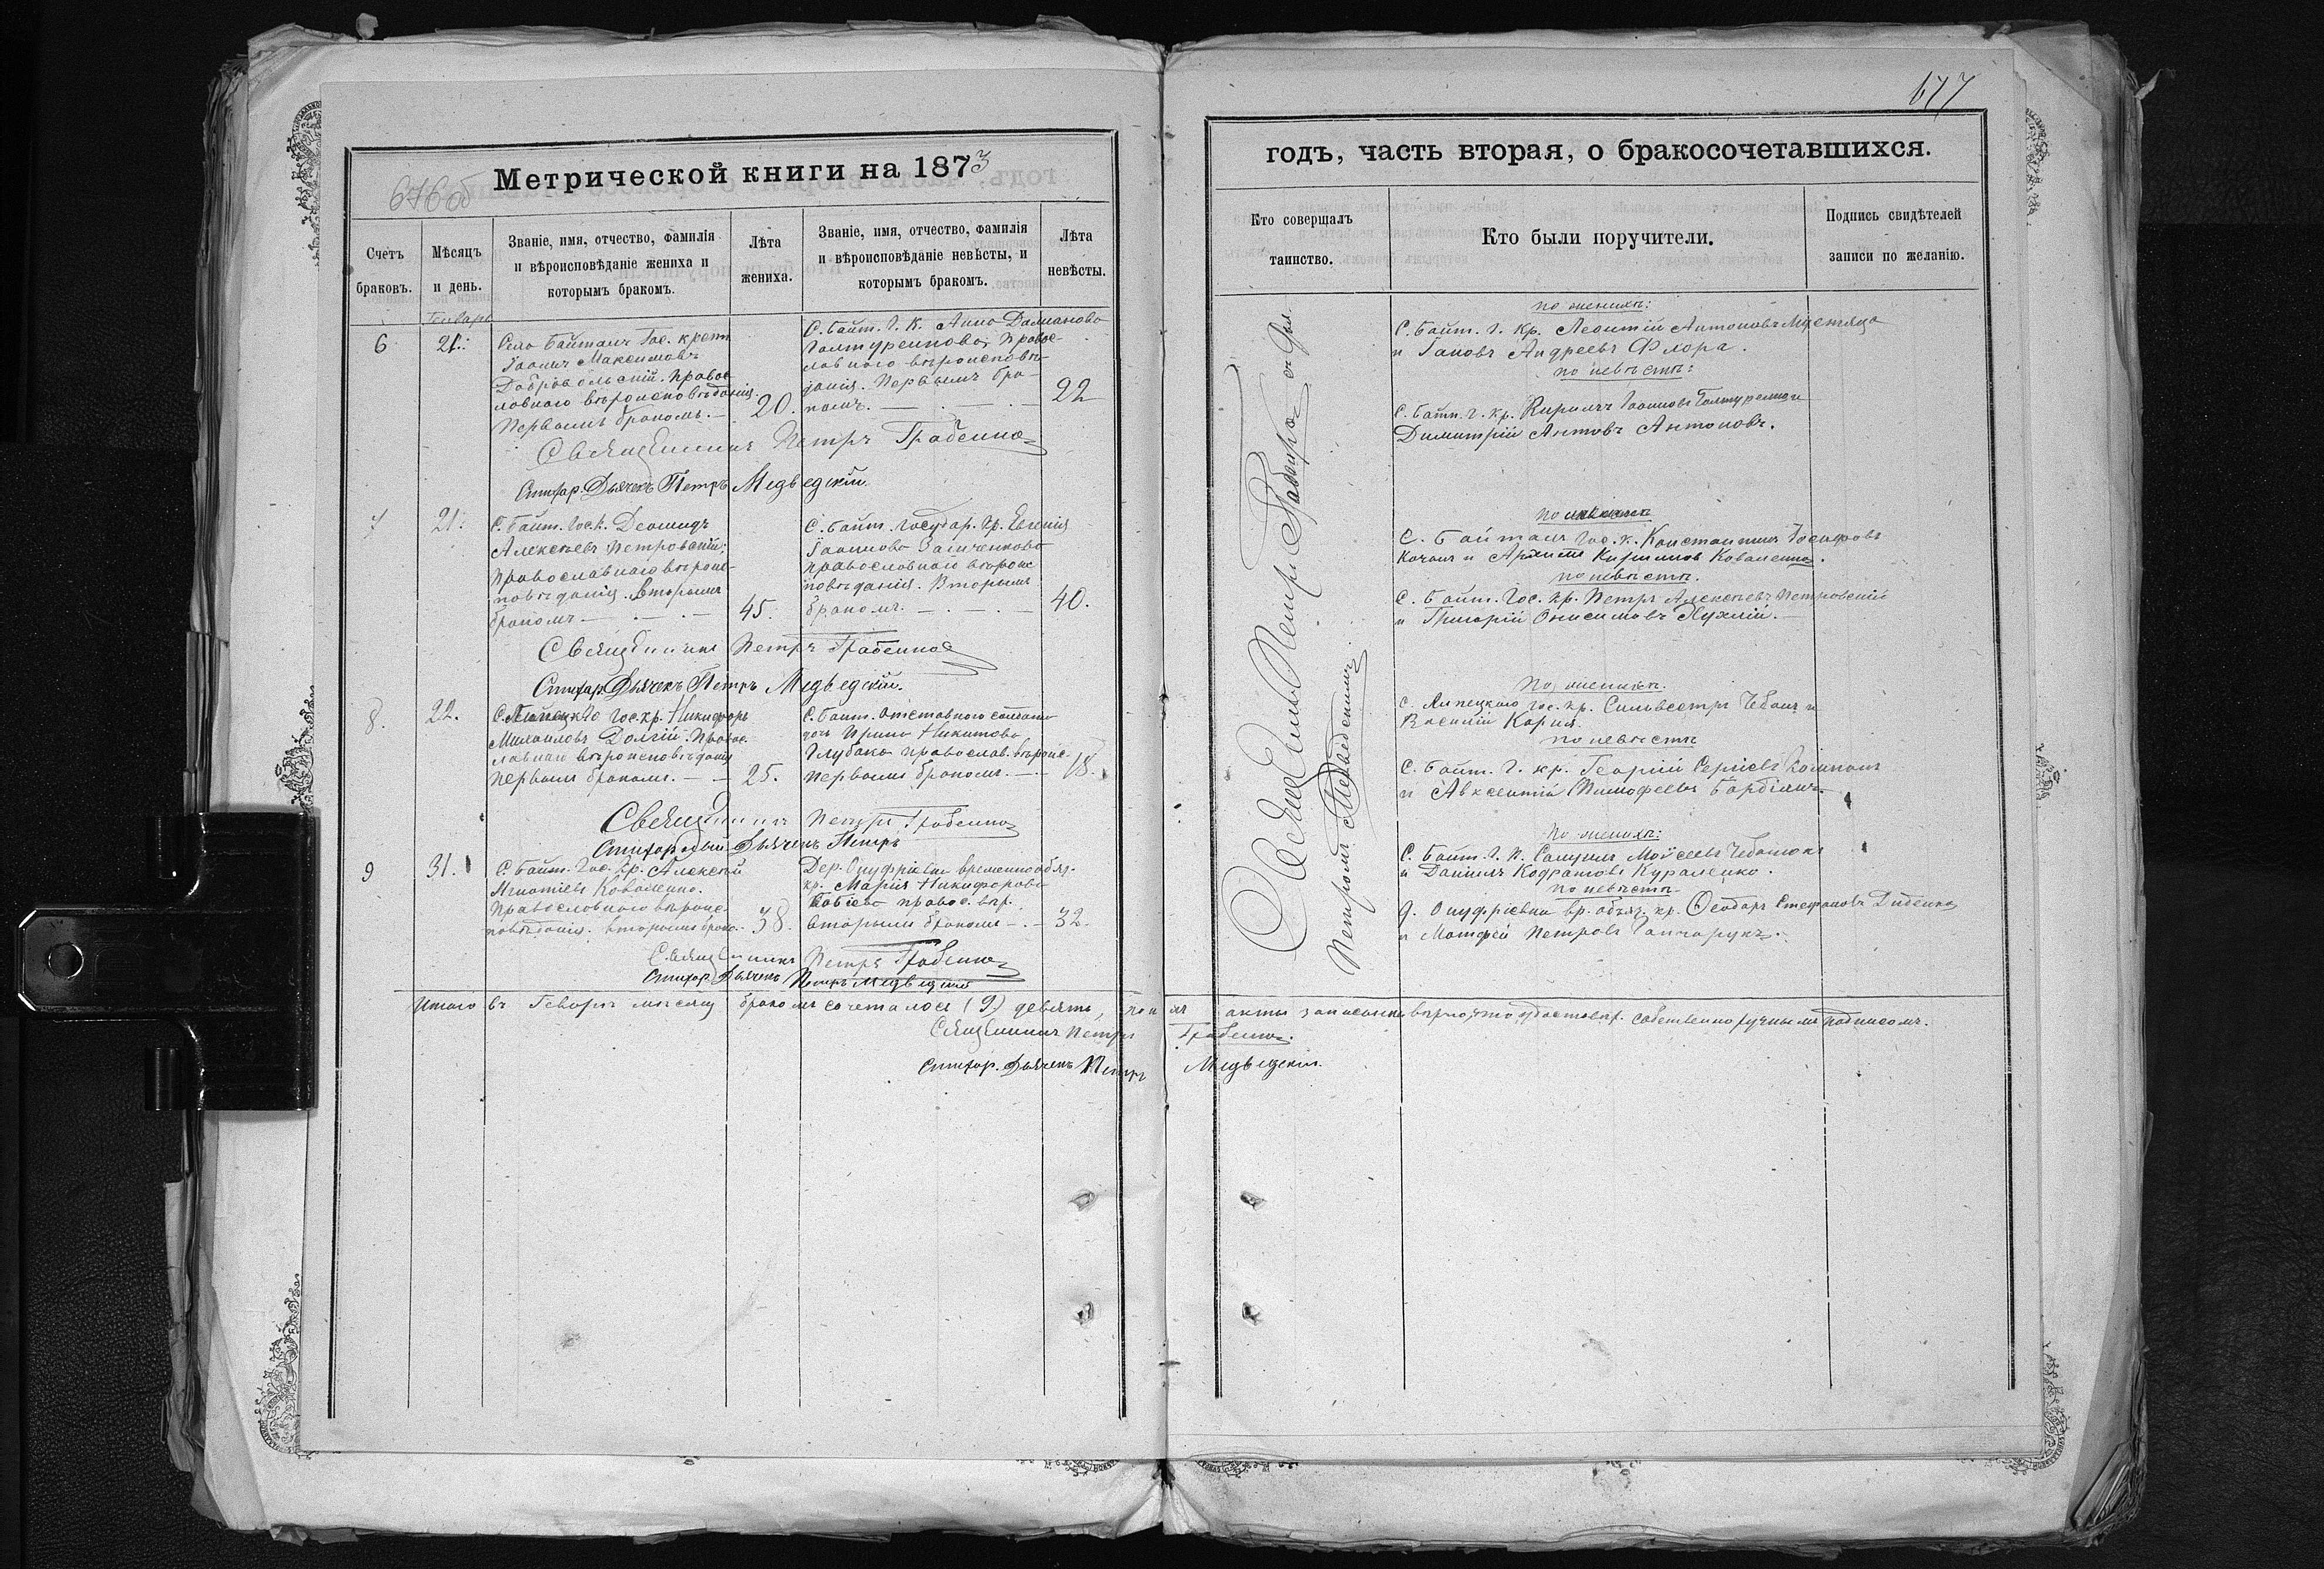 676об
Метрической книги на 1873
Счетъ браковъ.
Мѣсяцъ и день.
Званіе, имя, отчество, фамилія и вѣроисповѣданіе жениха и которымъ бракомъ.
Лѣта жениха.
Званіе, имя, отчество, фамилія и вѣроисповѣданіе невѣсты, и которымъ бракомъ.
Лѣта невѣсты.
Генварь
6
21.
Село Байталъ Гос. крест.
Іоаннъ Максимовъ
Добровольскій. правос-
лавнаго вѣроисповѣданія.
Первымъ бракомъ. —
20.
С. Байт. Г. К. Анна
правос-
лавнаго вѣроисповѣ-
данія. Первымъ бра-
комъ. —
22
Священникъ Петръ Грабенко
Стихар. Дьячекъ Петръ Медведскій.
7
21.
С. Байт. Гос. к. Деомидъ
Алексѣевъ Петровскій.
православнаго вѣроис-
повѣданія. Вторымъ
бракомъ —
45.
С. Байт. Государ. кр. Евгенія
Іоаннова
православнаго вѣроис
повѣданія. Вторымъ
бракомъ. —
40.
Священникъ Петръ Грабенко
Стихар. Дьячекъ Петръ Медведскій.
8.
22.
С. Липецкаго Гос. кр. Никифоръ
Михаиловъ Долгій. Правос-
лавнаго вѣроисповѣданія
первымъ бракомъ. —
25.
С. Байт. отставного солдата
дочь Ирина Никитова
Глубока православ. вѣроис.
первымъ бракомъ. —
18.
Священникъ Петръ Грабенко
Дьячекъ Петръ
9
31.
С. Байт. Гос. кр. Алексѣй
Игнатіевъ Коваленко.
Православнаго вѣроис-
повѣданія. вторымъ брак.
38.
Дер. Онуфріевки временнообяз.
кр. Марія Никифорова
Бабіева правос. вѣр.
вторымъ бракомъ —
32.
Священникъ Петръ Грабенко
Стихар. Дьячекъ Петръ Медведскій
Итого въ Генварѣ мѣсяцѣ бракомъ сочеталось (9) девять,
акты записаны вѣрно, то удостовѣр. собственноручнымъ подписомъ.
Священникъ Петръ Грабенко.
Стихар. Дьячекъ Петръ Медведскій.
677
годъ, часть вторая, о бракосочетавшихся.
Кто совершалъ таинство.
Кто были поручители.
Подпись свидѣтелей записи по желанію.
Священникъ Петръ Грабенко съ Дьяч.
Петромъ Медведскимъ.
по женихѣ:
С. Байт. Г. кр. Леонтій Антоновъ
и Іаковъ Андреевъ Флора.
по невѣстѣ:
С. Байт. Г. кр. Кириллъ Іоанновъ
Димитрій Антоновъ.
С. Байталъ Гос. к. Константинъ Іосифовъ
Кочанъ и Коваленко.
по невѣстѣ.
С. Байт. Гос. кр. Петръ Алексѣевъ Петровскій
и Григорій Онисимовъ
По женихѣ.
С. Липецкаго гос. кр. Сильвестръ Чебанъ и
Василій
по невѣстѣ
С. Байт. Г. кр. Георгій Сергіевъ
и Авксентій Тимофеевъ
По женихѣ:
С. Байт. Г. К. Самуилъ Моѵсеевъ
и Даніилъ Кодратовъ
по невѣстѣ
д. Онуфріевки вр. обяз. кр. Ѳеодоръ Стефановъ Диденко
и Матфей Петровъ Ганчарукъ.